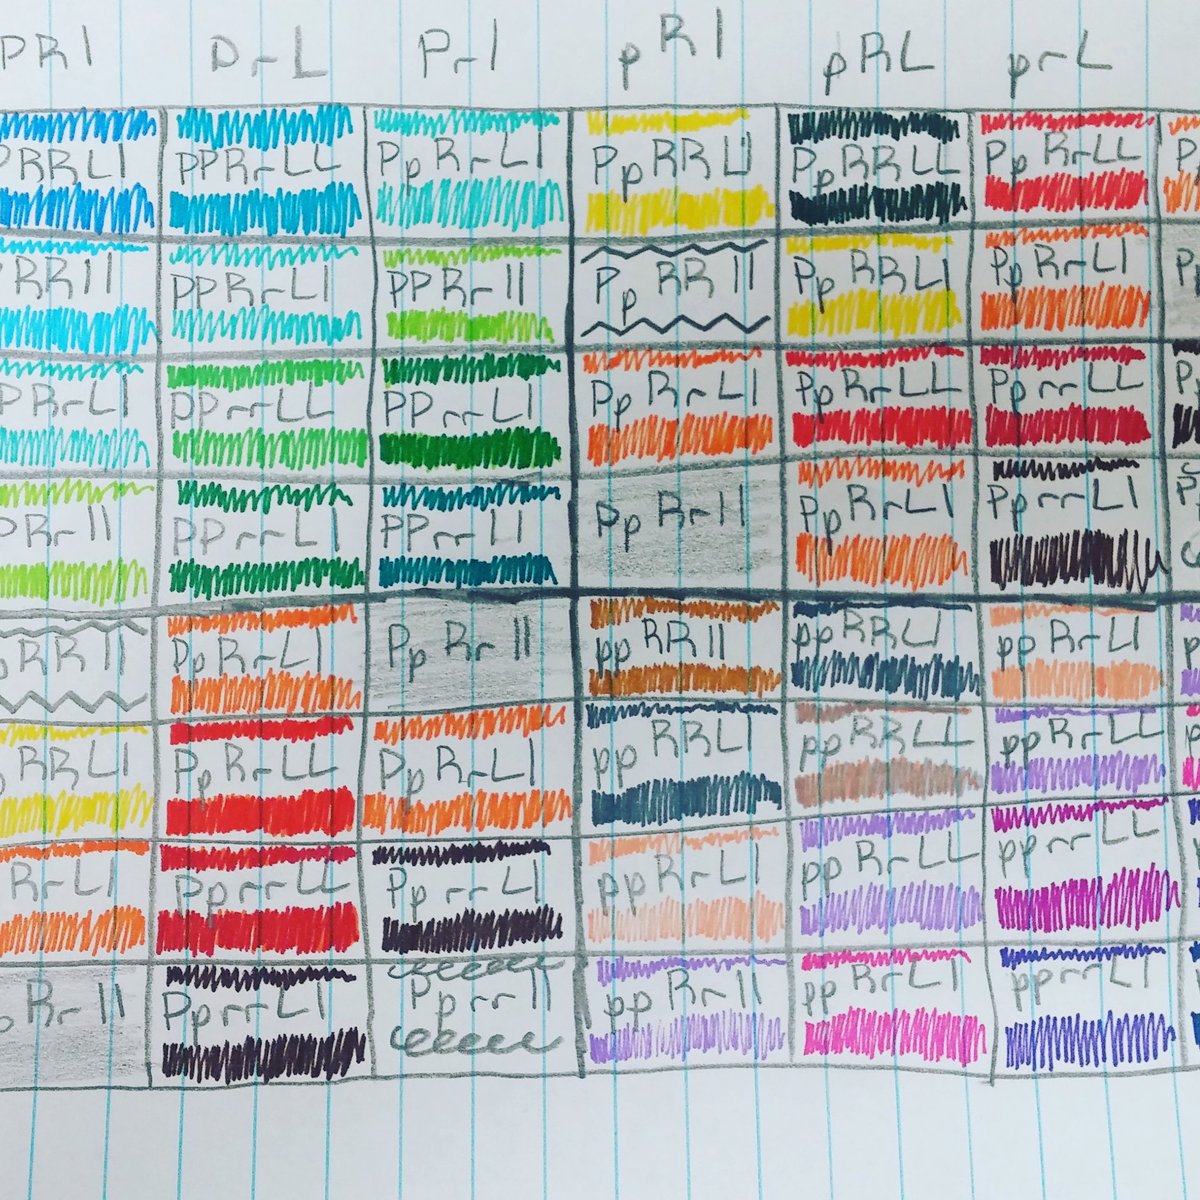 PRl PrL Prl pRl pRL prL
PRRLl PPRrLL PpRrLl PpRRLl PpRRLL PpRrLL
PRRll PPRrLl PPRrll PpRRll PpRRLl PpRrLl
PRrLl PPrrLL PPrrLl PpRrLl PpRrLL PprrLL
PRrll PPrrLl PPrrll PpRrll PpRrLl PprrLl
pRRll PpRrLl PpRrll ppRRll ppRRLl ppRrLl
pRRLl PpRrLL PpRrLl ppRRLl ppRRLL ppRrLl
RrLl PprrLL PprrLl ppRrLl ppRrLL pprrLL
pRrll PprrLl Pprrll ppRrll ppRrLl pprrLl